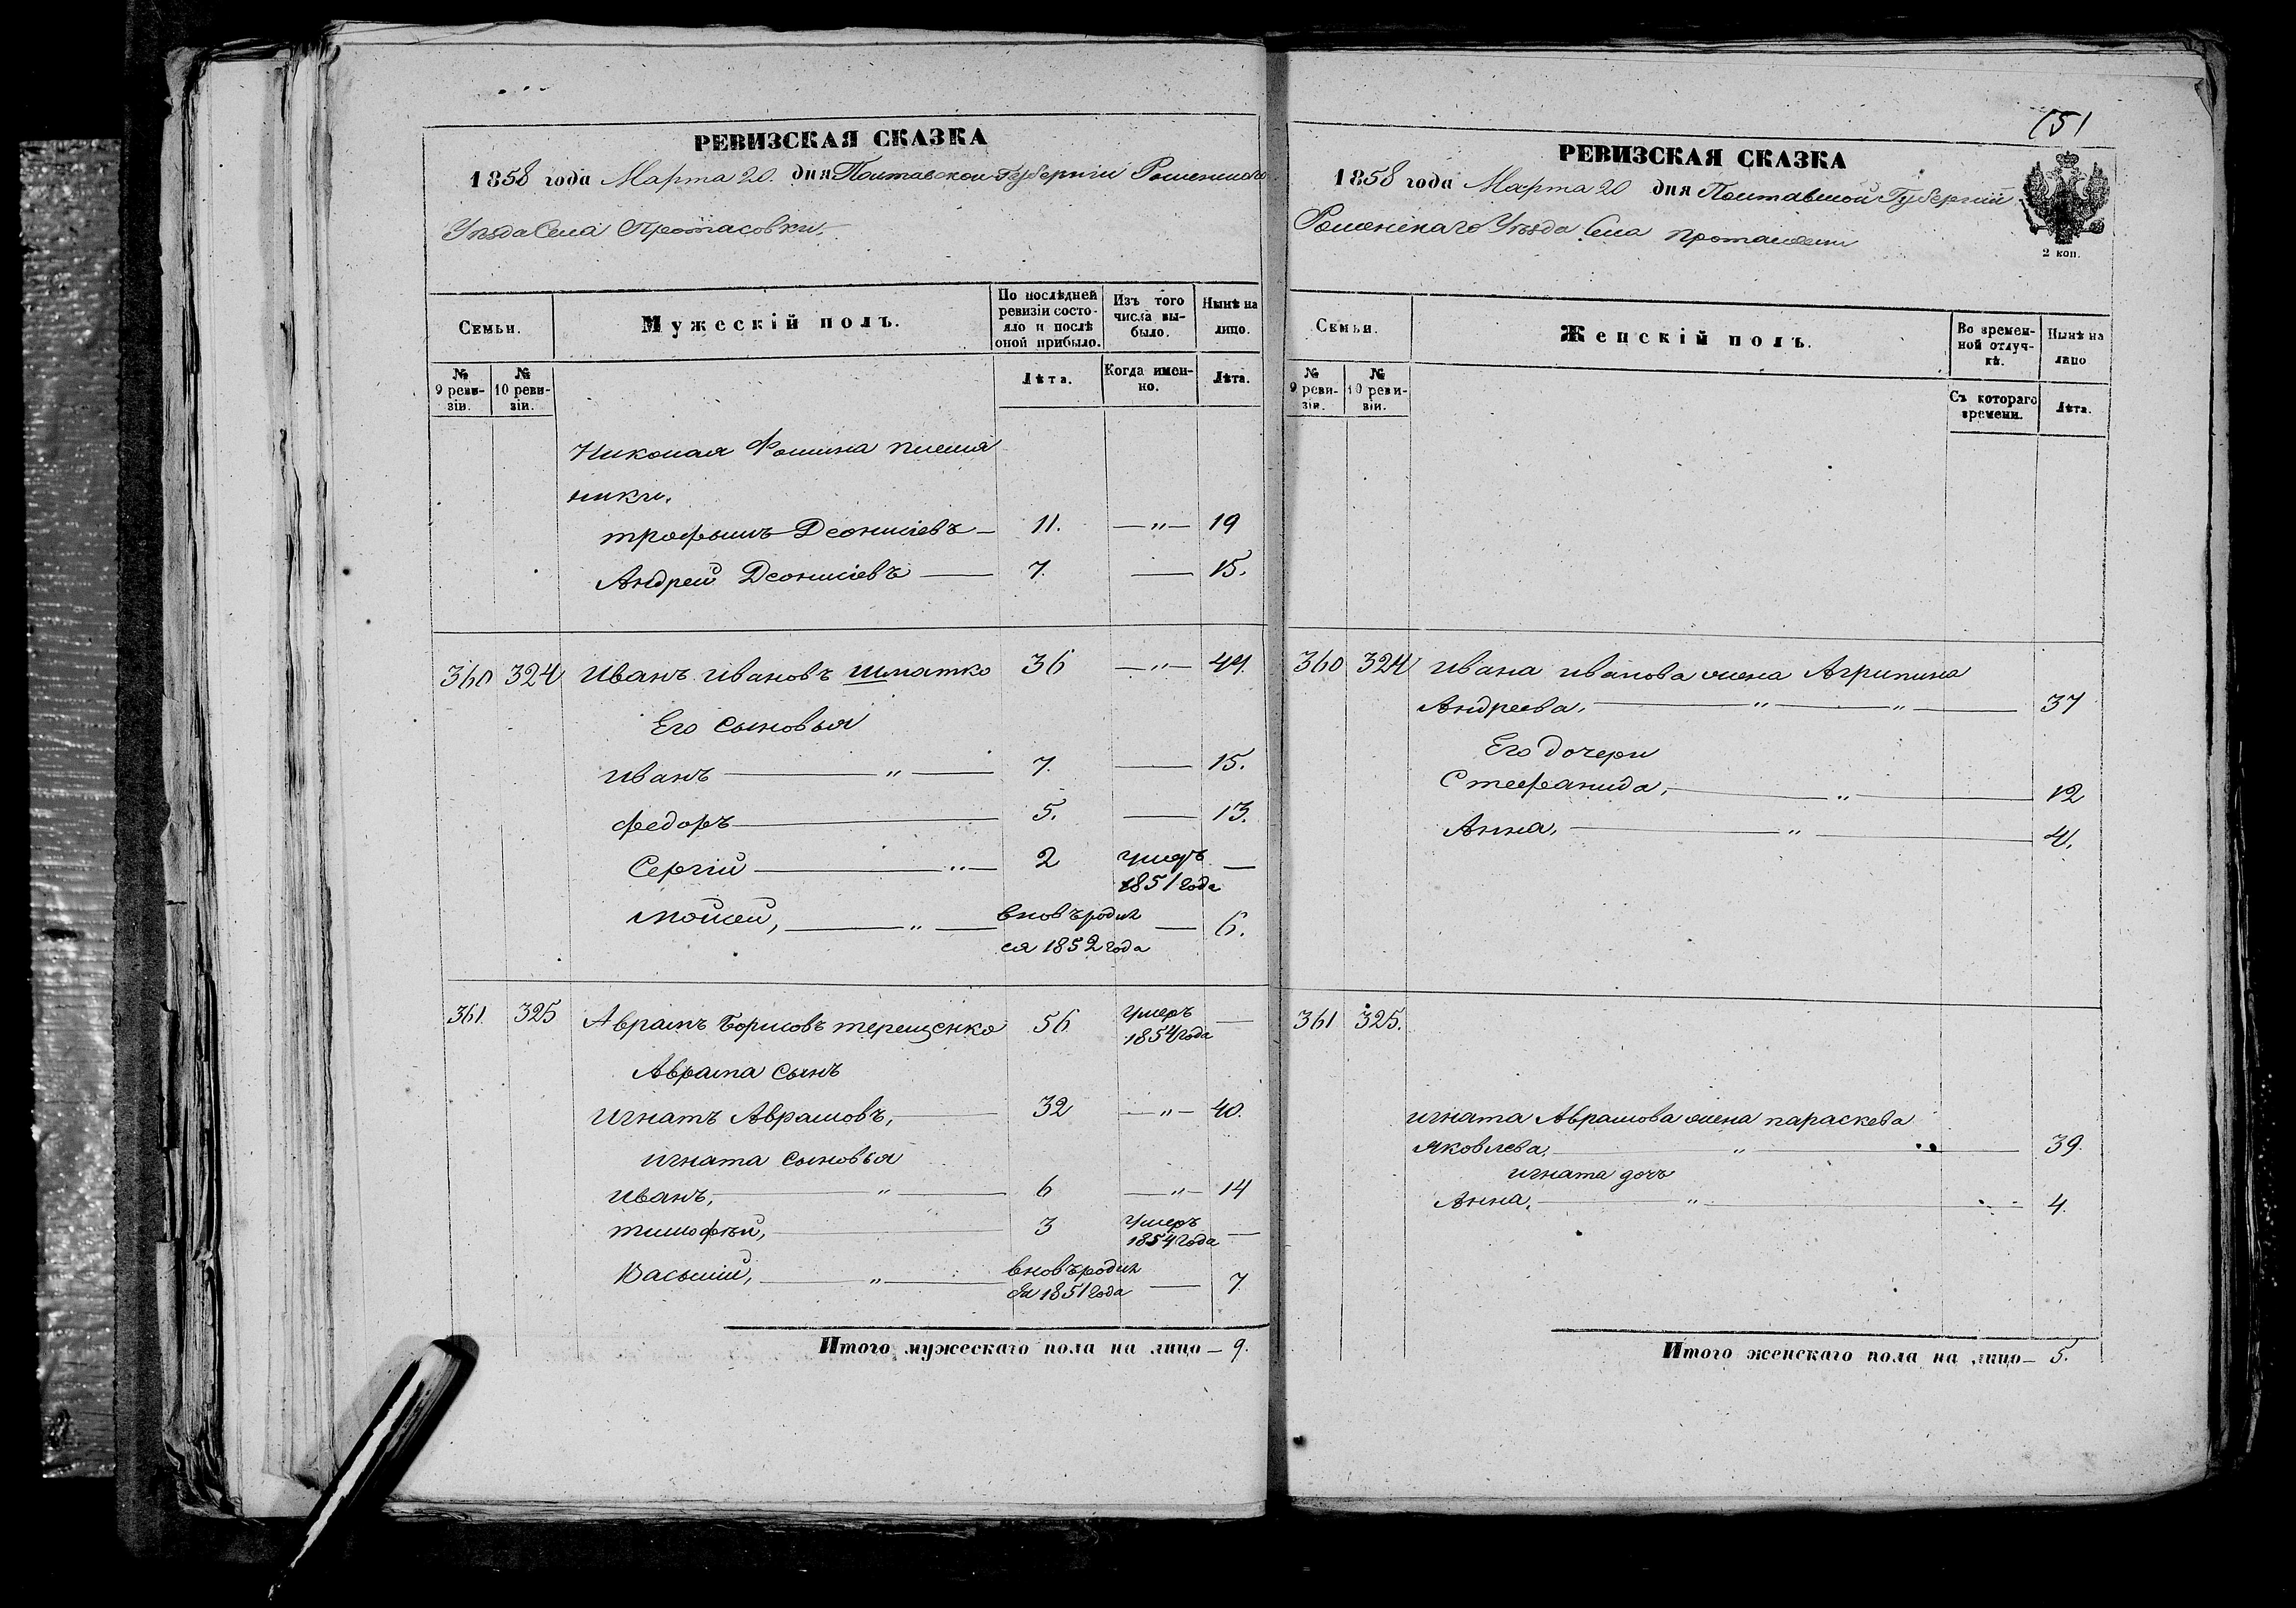 РЕВИЗСКАЯ СКАЗКА
1858 года Марта 20. дня Полтавской Губерніи Роменскаго
Уѣзда Села Протасовки.
Семьи.
Мужескій полъ.
По послѣдней ревизіи состояло и послѣ оной прибыло.
Изъ того числа выбыло.
Нынѣ на лицо.
№ 9 ревизіи.
№ 10 ревизіи.
Лѣта.
Когда именно.
Лѣта.
Николая Фомина племян
ники.
трофимъ Деонисіевъ — 11. —"— 19
Андрей Деонисіевъ — 7. — 15.
360 324 Иванъ Ивановъ Шматко 36 —"— 44.
Его сыновья
Иванъ —"— 7. — 15.
федоръ — 5. — 13.
Сергій —"— 2 умеръ 1851 года —
Мойсей, —"— вновь родил
ся 1852 года — 6.
361. 325 Аврамъ Борисовъ терещенко 56 Умеръ 1854 года —
Аврама сынъ
Игнатъ Аврамовъ, — 32 —"— 40.
игната сыновья
Иванъ, —"— 6 —"— 14
тимофѣй, — 3 Умеръ 1854 года —
Василій, —"— вновь родил
ся 1851 года — 7.
Итого мужескаго пола на лицо — 9.
151
РЕВИЗСКАЯ СКАЗКА
1858 года Марта 20 дня Полтавской Губерніи
Роменскаго Уѣзда Села Протасовки
2 коп.
Семьи.
Женскій полъ.
Во временной отлучкѣ.
Нынѣ на лицо
№ 9 ревизіи.
№ 10 ревизіи.
Съ котораго времени.
Лѣта.
360 324 Ивана Иванова жена Агрипина
Андреева, —"—"— 37
Его дочери
Стефанида, —"— 12
Анна, —"— 4.
361 325.
игната Аврамова жена параскева
Яковлева, —"— 39.
игната дочь
Анна, —"— 4.
Итого женскаго пола на лицо — 5.